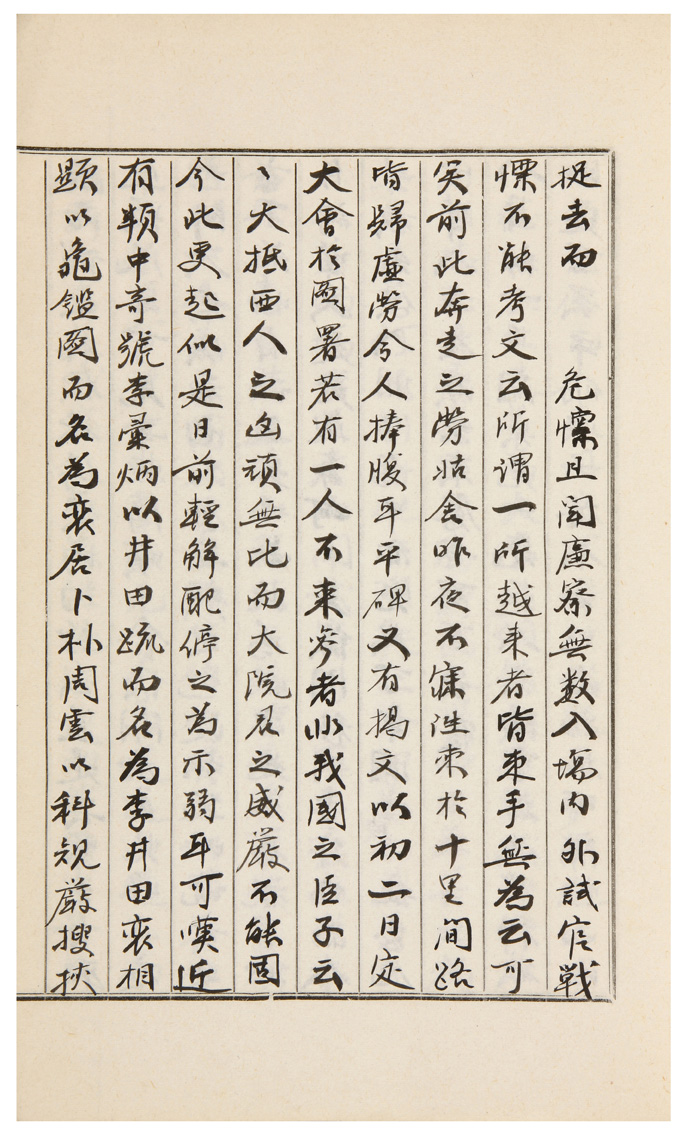 捉去而　危懍且聞廉察無數入場內外試官戰
慄不能考文云所謂一所越来者皆束手無為云可
笑前此奔走之勞姑舍昨夜不寐往来於十里間路
皆歸虛勞令人捧腹耳平碑又有揭文以初二日定
大會於圜署若有一人不来參者非我國之臣子云
〻大抵西人之凶頑無比而大院君之威嚴不能固
今此更起似是日前輕解配停之為示弱耳可嘆近
有頬中奇號李彙炳以井田疏而名為李井田裵相
顯以龜鑑圖而名為裵居卜朴周雲以科規嚴搜挾